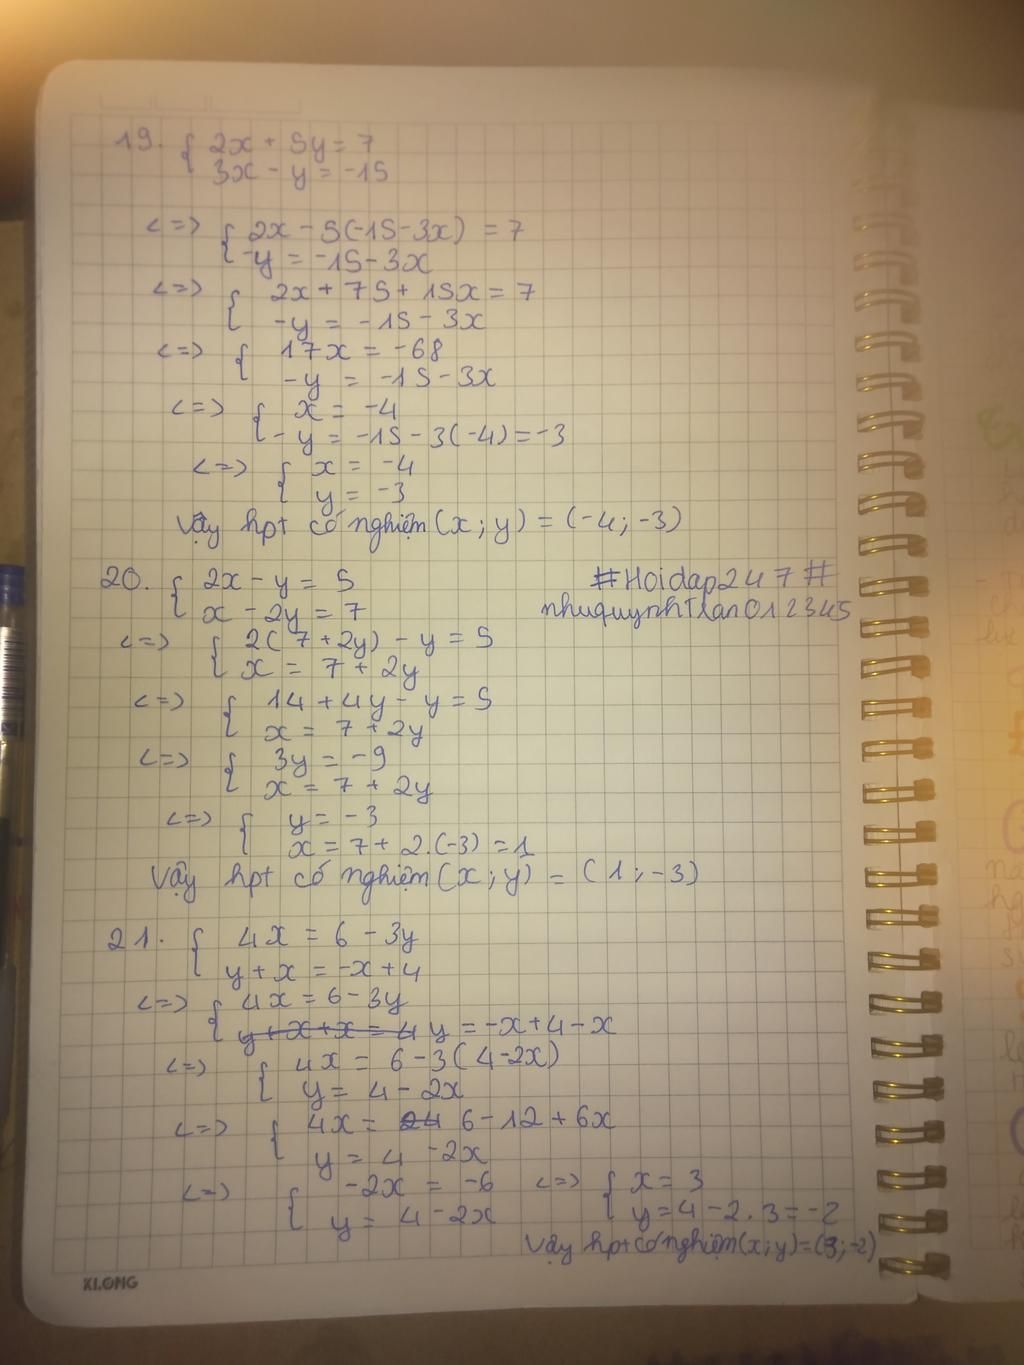 19. { 2x + 5y = 7
3x - y = -15
<=> { 2x - 5(-15-3x) = 7
-y = -15-3x
<=> { 2x + 75 + 15x = 7
-y = -15 - 3x
<=> { 17x = -68
-y = -15-3x
<=> { x = -4
-y = -15 - 3(-4) = -3
<=> { x = -4
y = -3
Vậy hpt có nghiệm (x; y) = (-4; -3)
20. { 2x - y = 5
x - 2y = 7
#Hoidap247#
nhuquynhTran012345
<=> { 2(7+2y) - y = 5
x = 7 + 2y
<=> { 14 + 4y - y = 5
x = 7 + 2y
<=> { 3y = -9
x = 7 + 2y
<=> { y = -3
x = 7 + 2.(-3) = 1
Vậy hpt có nghiệm (x; y) = (1; -3)
21. { 4x = 6 - 3y
y + x = -x + 4
<=> { 4x = 6 - 3y
y + x + x = 4 y = -x + 4 - x
<=> { 4x = 6 - 3(4-2x)
y = 4 - 2x
<=> { 4x = 24 6 - 12 + 6x
y = 4 - 2x
<=> { -2x = -6 <=> { x = 3
y = 4 - 2x y = 4 - 2.3 = -2
Vậy hpt có nghiệm (x; y) = (3; -2)
KLONG